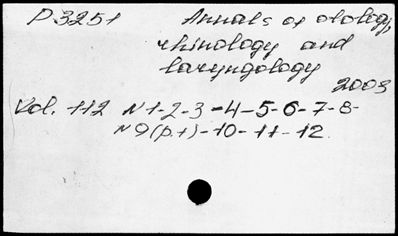 P3251 Annals of otology,
rhinology and
laryngology
2003
Vol. 112 N1-2-3-4-5-6-7-8-
N9(p.1)-10-11-12.